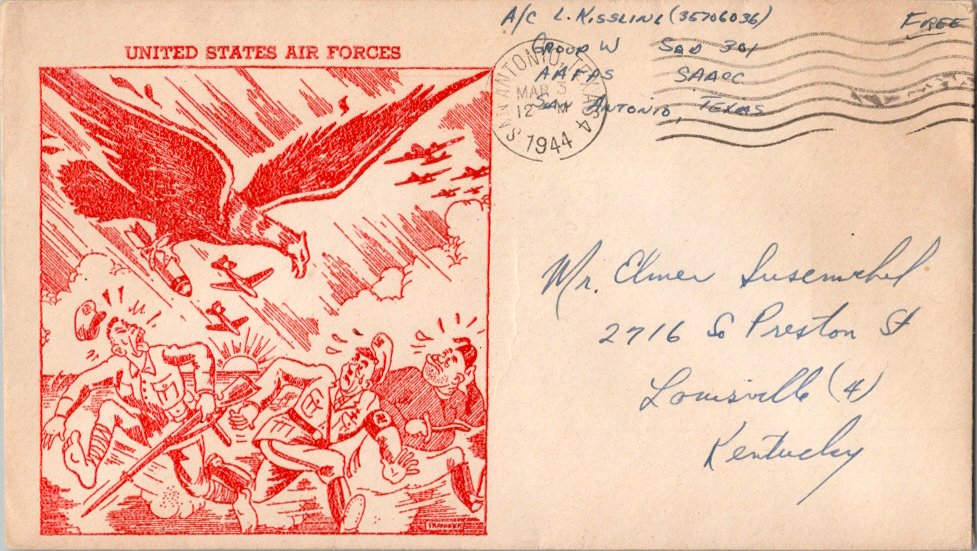 A/C L. Kissling (35706036)
Free
Group W Sqd 301
AAFPS SAACC
San Antonio, Texas
SAN ANTONIO, TEXAS
MAR 3
12 M
1944
UNITED STATES AIR FORCES
Mr. Elmer
2716 So Preston St
Louisville (4)
Kentucky